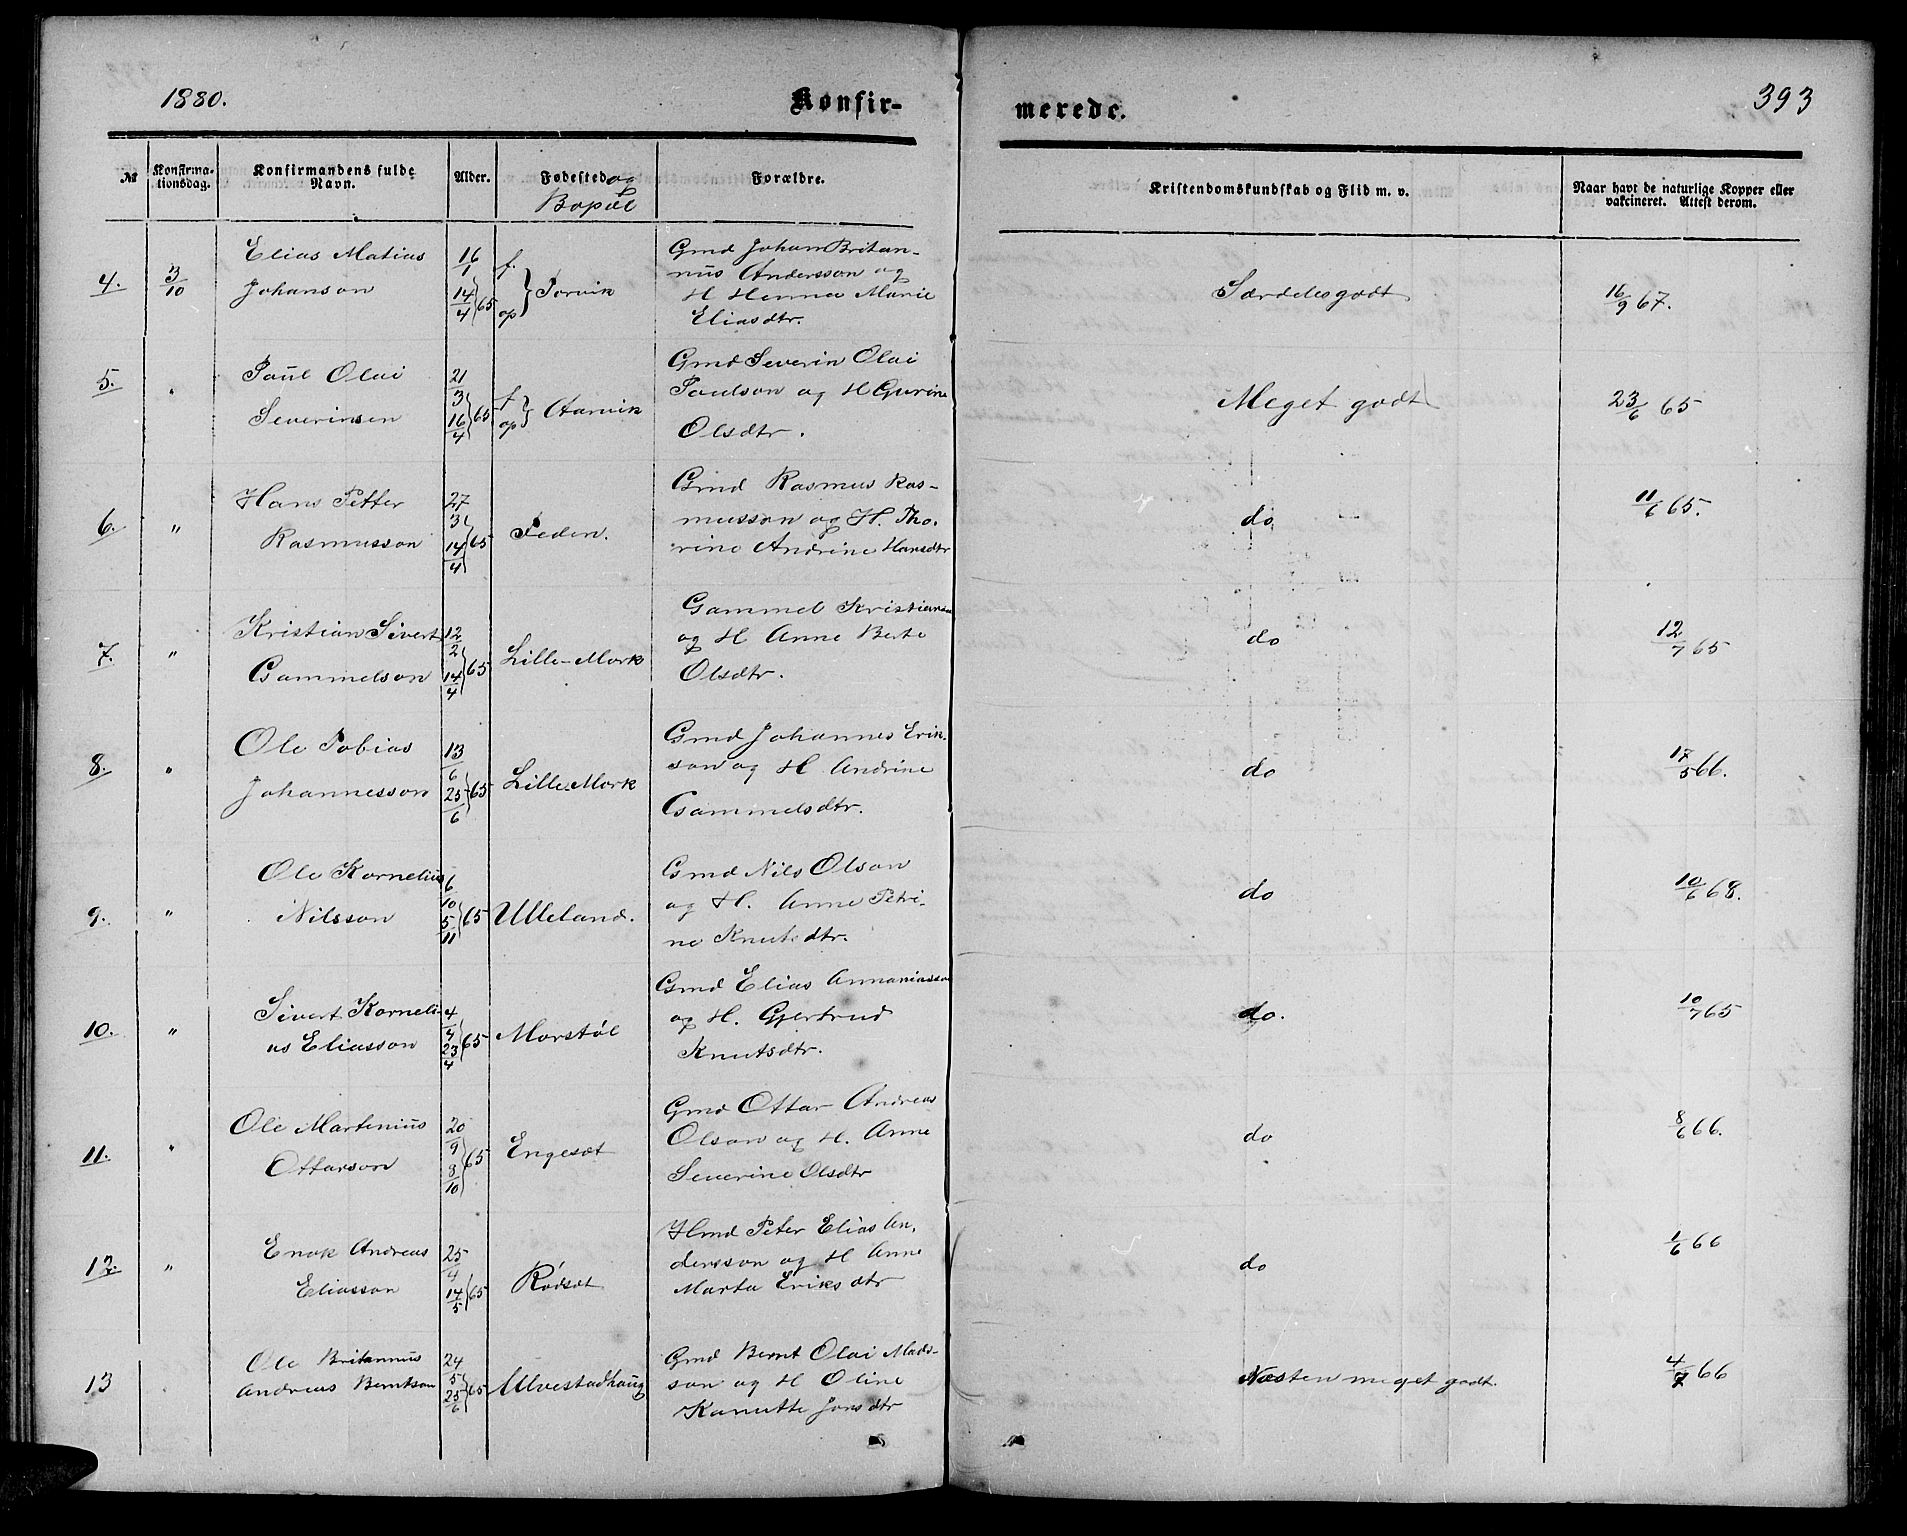 1880.
Konfir-
merede.
393
№
Konfirma-
tionsdag.
Konfirmandens fulde
Navn.
Alder.
Fødested og
Bopæl
Forældre.
Kristendomskundskab og Flid m. v.
Naar havt de naturlige Kopper eller
vakcineret. Attest derom.
4.
3/10
Elias Matias
Johanson
16/1
14/4 } 65
f.
op } Torvik
Gmd Johan Britan-
nus Andersson og
H Henna Marie
Eliasdtr.
Særdeles godt
16/9 67.
5.
"
Paul Olai
Severinsen
21/3
16/4 } 65
f
op } Aarvik
Gmd Severin Olai
Paulson og H Gurine
Olsdtr.
Meget godt
23/6 65
6.
"
Hans Petter
Rasmusson
27/3
14/4 } 65
Teden.
Gmd Rasmus Ras-
musson og H. Tho-
rine Andrine Hansdtr
do
11/6 65.
7.
"
Kristian Sivert
Gammelson
12/2
14/4 } 65
Lille-Mork
Gammel Kristianson
og H Anne Berte
Olsdtr.
do
12/7 65
8.
"
Ole Tobias
Johannesson
13/6
25/6 } 65
Lille-Mork
Gmd Johannes Erik-
son og H Andrine
Gammelsdtr.
do
17/5 66.
9.
"
Ole Kornelius
Nilsson
6/10
5/11 } 65
Ulleland.
Gmd Nils Olson
og H. Anne Petri-
ne Knutsdtr.
do
10/6 68.
10.
"
Sivert Korneli-
us Eliasson
4/4
23/4 } 65
Morstøl
Gmd Elias Annaniasson
og H. Gjertrud
Knutsdtr.
do.
10/7 65
11.
"
Ole Martenius
Ottarson
20/9
8/10 } 65
Engeset
Gmd Ottar Andreas
Olson og H. Anne
Severine Olsdtr
do
8/6 66.
12.
"
Enok Andreas
Eliasson
25/4
14/5 } 65
Rødset
Hmd Peter Elias An-
dersson og H Anne
Marta Eriksdtr
do
1/6 66
13
Ole Britannus
Andreas Berntson
24/5
25/6 } 65
Ulvestadhaug
Gmd Bernt Olai Mads-
son og H Oline
Kanutte Jonsdtr
Næsten meget godt.
4/7 66